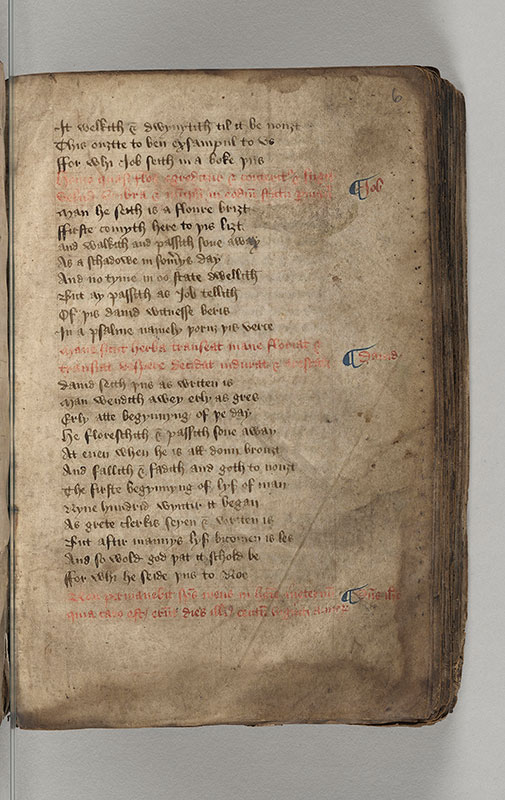 6
It welkith & dwynyth til it be nouȝt
This ouȝtte to ben exsampul to us
ffor whi Job seith in a boke þus
quasi flos & Job
umbra &
Man he seith is a floure briȝt
ffirste comyth here to þis liȝt
And walkith and passith sone away
As a schadowe in somys day
And no tyme in oo state dwellith
But ay passith as Job tellith
Of þis dauid witnesse beris
In a psalme namely þorw þis verce
Mane sicut herba transeat mane floriat &
transeat vespere decidat induret & Dauid
dauid seith þus as writen is
Man wendith awey erly as gres
Erly atte begynnyng of þe day
He floreschith & passith sone away
At euen when he is all doun brouȝt
And fallith & fadith and goth to nouȝt
The firste begynnyng of lyf of man
Nyne hundrid wyntir it began
As grete clerkis seyen & writen is
But aftir mannys lyf bicomen is les
And so wold god þat it schold be
ffor whi he seide þus to Noe
permanebit meus in
quia caro est dies